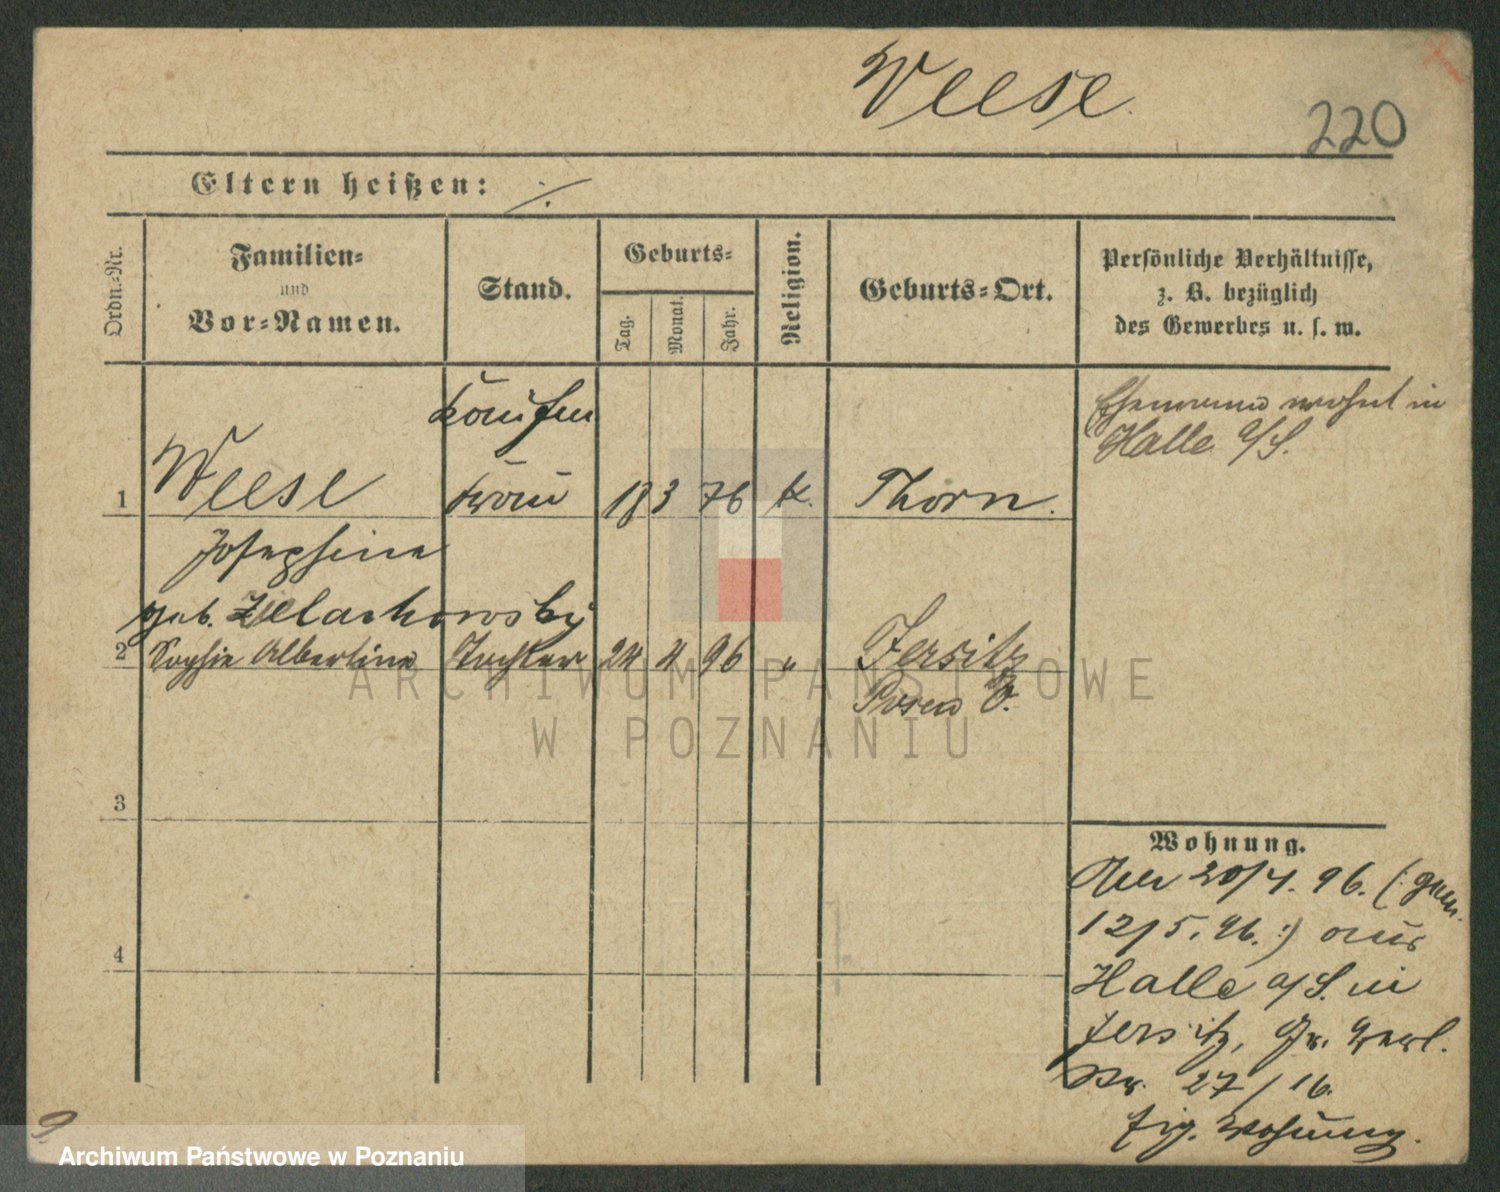 Weese
220
Eltern heißen: ./.
Ordn.-Nr.
Familien-
und
Vor-Namen.
Stand.
Geburts-
Tag.
Monat.
Jahr.
Religion.
Geburts-Ort.
Persönliche Verhältnisse,
z. B. bezüglich
des Gewerbes u. s. w.
1 Weese
Josephine
geb.
frau
18 3 76 k. Thorn.
Ehemann wohnt in
Halle a/S.
2 Sophie Albertine Tochter 24 4 96 " Jersitz
Posen O.
3
4
Wohnung.
20/4. 96. (: gem.
12/5. 96. :) aus
Halle a/S. in
Jersitz, Gr. Berl.
Str. 27/16.
Eig. Wohnung.
ARCHIWUM PAŃSTWOWE
W POZNANIU
Archiwum Państwowe w Poznaniu